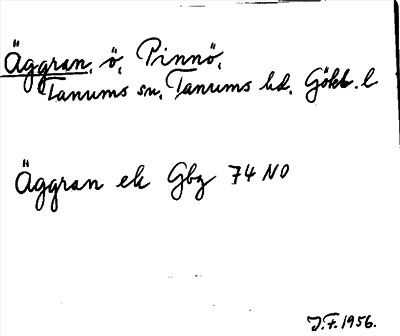 Äggran, ö, Pinnö,
Tanums sn, Tanums hd, Gökb. l
Äggran ek Gbg 74 NO
J.F. 1956.